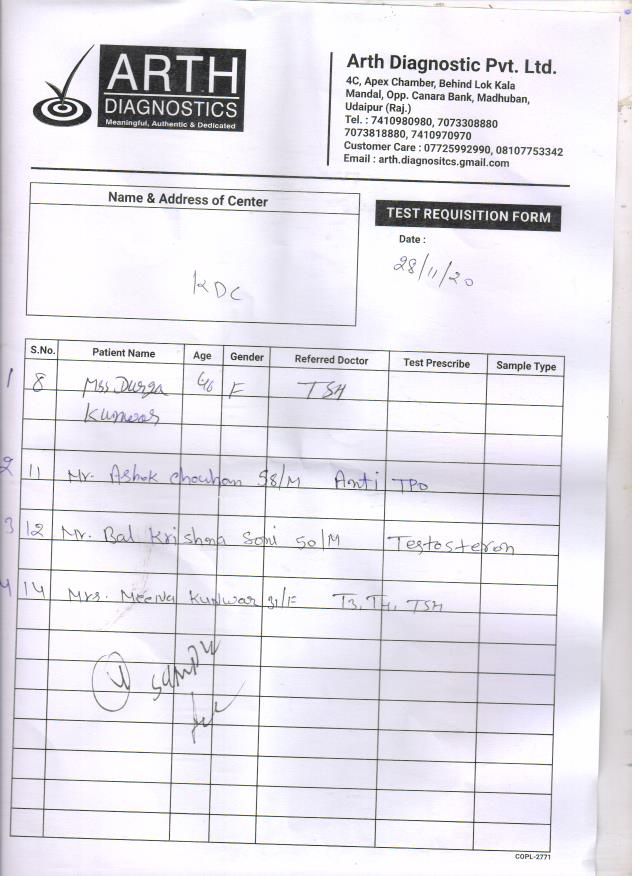 ARTH
DIAGNOSTICS
Meaningful, Authentic & Dedicated
Arth Diagnostic Pvt. Ltd.
4C, Apex Chamber, Behind Lok Kala
Mandal, Opp. Canara Bank, Madhuban,
Udaipur (Raj.)
Tel. : 7410980980, 7073308880
7073818880, 7410970970
Customer Care : 07725992990, 08107753342
Email : arth.diagnositcs.gmail.com
Name & Address of Center
KDC
TEST REQUISITION FORM
Date :
28/11/20
S.No. Patient Name Age Gender Referred Doctor Test Prescribe Sample Type
1 8 Durga F TSH
2 11 Mr. Ashok Chouhan 58/M Anti TPO
3 12 Mr. Bal Krishna Soni 50/M Testosteron
4 14 Mrs. Meena Kunwar 31/F T3, T4, TSH
COPL-2771